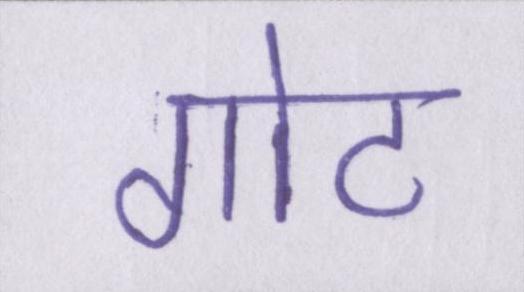 गोट